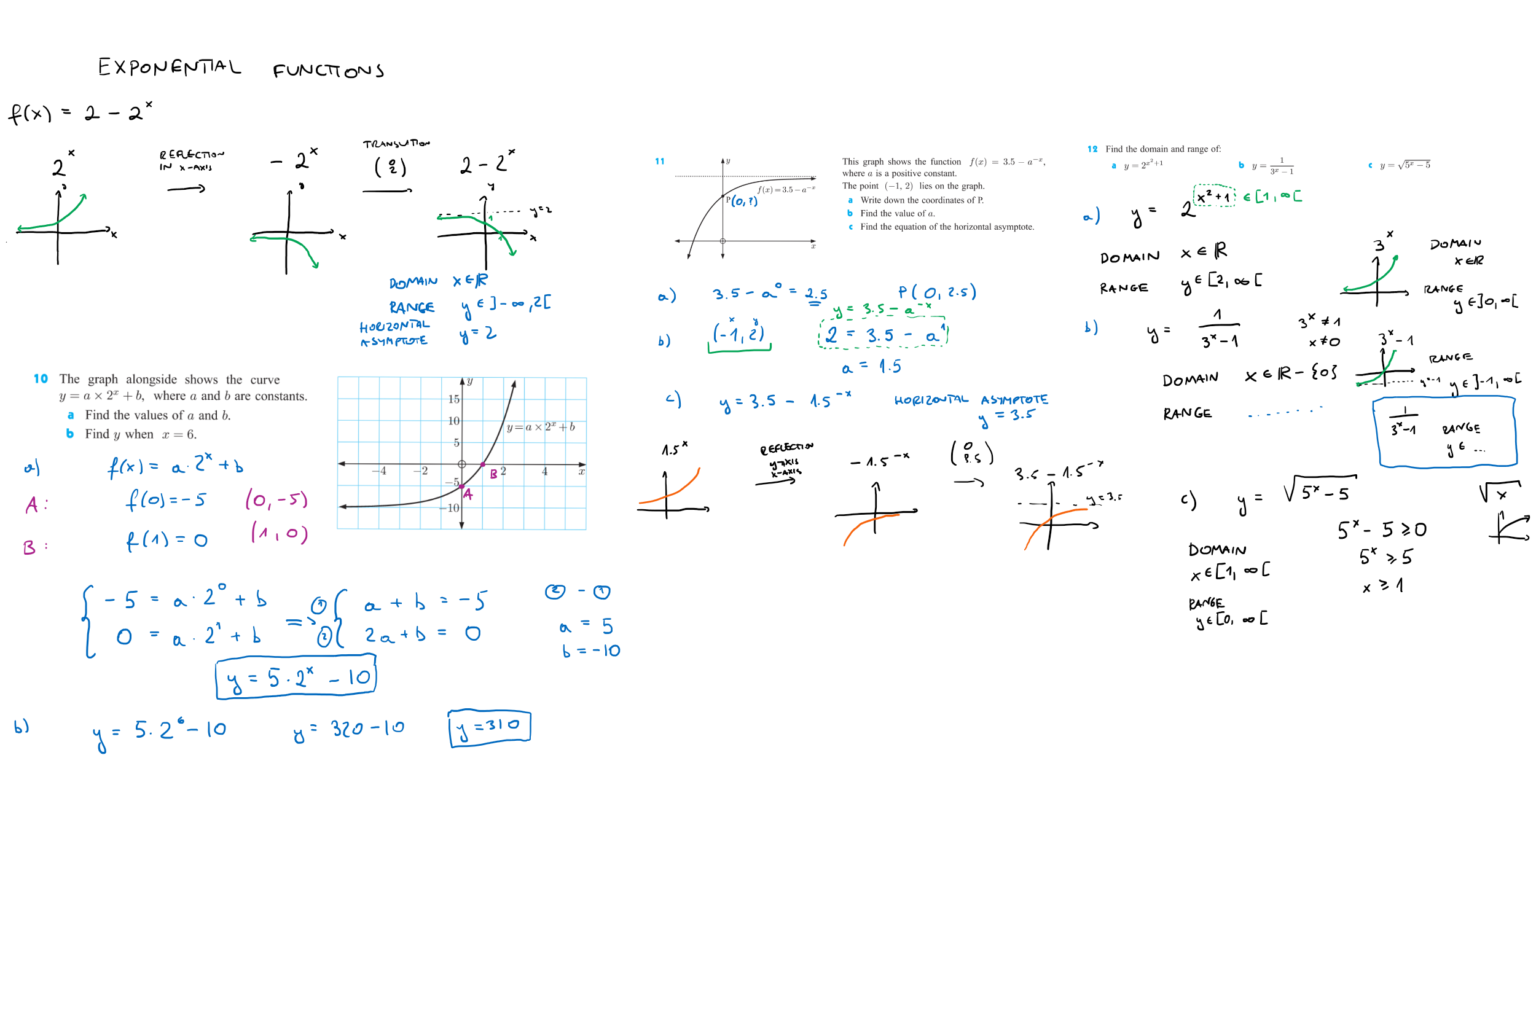 EXPONENTIAL FUNCTIONS
f(x) = 2 - 2^x
2^x
REFLECTION
IN X-AXIS
- 2^x
TRANSLATION
(0 2)
2 - 2^x
y
y = 2
x
x
x
DOMAIN x ∈ ℝ
RANGE y ∈ ]-∞, 2[
HORIZONTAL
ASYMPTOTE y = 2
10 The graph alongside shows the curve
y = a × 2^x + b, where a and b are constants.
a Find the values of a and b.
b Find y when x = 6.
y
15
10
5
-5
-10
-4 -2 2 4 x
y = a × 2^x + b
A
B
a) f(x) = a · 2^x + b
A: f(0) = -5 (0, -5)
B: f(1) = 0 (1, 0)
-5 = a · 2^0 + b
0 = a · 2^1 + b
=>
① a + b = -5
② 2a + b = 0
② - ①
a = 5
b = -10
y = 5 · 2^x - 10
b) y = 5 · 2^6 - 10 y = 320 - 10 y = 310
11
y
f(x) = 3.5 - a^-x
P(0, ?)
x
This graph shows the function f(x) = 3.5 - a^-x,
where a is a positive constant.
The point (-1, 2) lies on the graph.
a Write down the coordinates of P.
b Find the value of a.
c Find the equation of the horizontal asymptote.
a) 3.5 - a^0 = 2.5 P(0, 2.5)
y = 3.5 - a^-x
b) (-1, 2) 2 = 3.5 - a^1
x y
a = 1.5
c) y = 3.5 - 1.5^-x HORIZONTAL ASYMPTOTE
y = 3.5
1.5^x
REFLECTION
X-AXIS
- 1.5^-x
3.5 - 1.5^-x
12 Find the domain and range of:
a y = 2^x²+1
b y = 1/(3^x - 1)
c y = √(5^x - 5)
a) y = 2^x²+1 ∈ [1, ∞[
DOMAIN x ∈ ℝ
RANGE y ∈ [2, ∞[
3^x
DOMAIN
x ∈ ℝ
RANGE
y ∈ ]0, ∞[
b) y = 1/(3^x - 1)
3^x ≠ 1
x ≠ 0
DOMAIN x ∈ ℝ - {0}
RANGE .......
3^x - 1
RANGE
y ∈ ]-1, ∞[
1/(3^x - 1) RANGE
y ∈ ...
c) y = √(5^x - 5)
√x
5^x - 5 ≥ 0
5^x ≥ 5
x ≥ 1
DOMAIN
x ∈ [1, ∞[
RANGE
y ∈ [0, ∞[